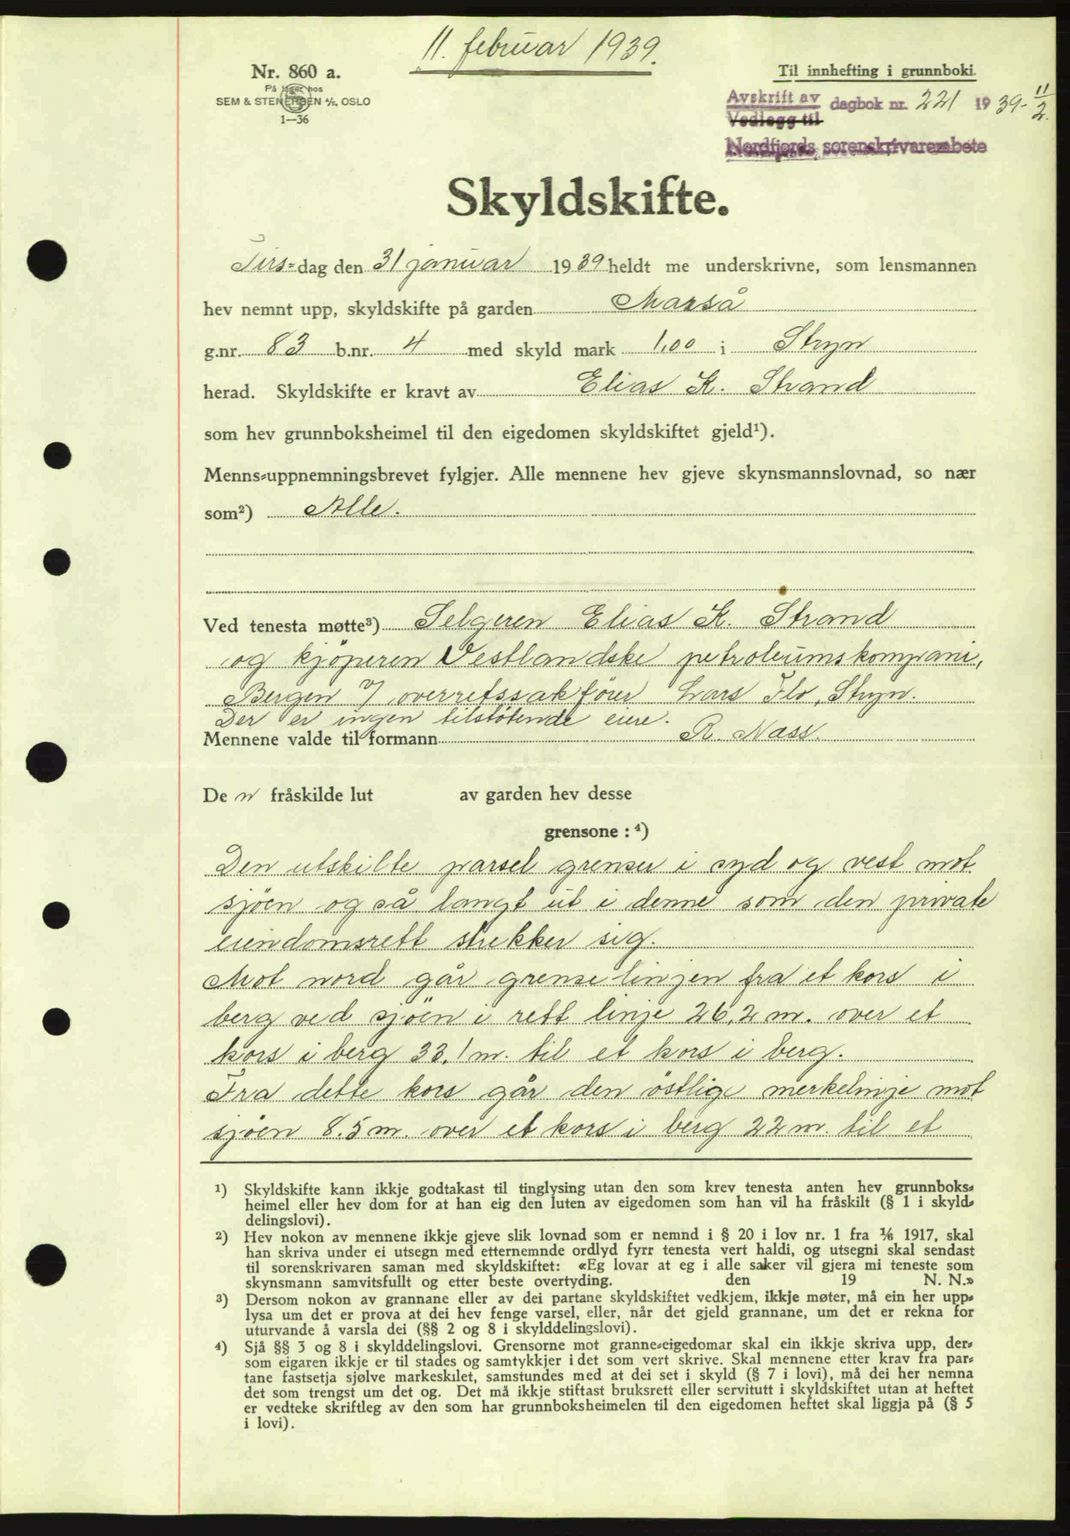 11. februar 1939.
Nr. 860 a.
På lager hos
SEM & STENERSEN A/S, OSLO
1—36
Til innhefting i grunnboki.
Avskrift av dagbok nr. 221 1939 - 11/2.
Vedlegg til
Nordfjords sorenskrivarembete
Skyldskifte.
Tirs-dag den 31 januar 1939 heldt me underskrivne, som lensmannen
hev nemnt upp, skyldskifte på garden Marså
g.nr. 83 b.nr. 4 med skyld mark 1,00 i Stryn
herad. Skyldskifte er kravt av Elias K. Strand
som hev grunnboksheimel til den eigedomen skyldskiftet gjeld¹).
Menns-uppnemningsbrevet fylgjer. Alle mennene hev gjeve skynsmannslovnad, so nær
som²) Alle.
Ved tenesta møtte³) Selgeren Elias K. Strand
og kjöperen Vestlandske petroleumskompani,
Bergen v/ overretssakförer Lars Flo, Stryn.
Der er ingen tilstötende eiere.
Mennene valde til formann R. Næss.
De n fråskilde lut av garden hev desse
grensone : ⁴)
Den utskilte parsel grenser i syd og vest mot
sjöen og så langt ut i denne som den private
eiendomsrett strekker sig.
Mot nord går grenselinjen fra et kors i
berg ved sjöen i rett linje 26,2 m. over et
kors i berg 33,1 m. til et kors i berg.
Fra dette kors går den östlige merkelinje mot
sjöen 8.5 m. over et kors i berg 22 m. til et
¹) Skyldskifte kann ikkje godtakast til tinglysing utan den som krev tenesta anten hev grunnboks-
heimel eller hev dom for at han eig den luten av eigedomen som han vil ha fråskilt (§ 1 i skyld-
delingslovi).
²) Hev nokon av mennene ikkje gjeve slik lovnad som er nemnd i § 20 i lov nr. 1 fra 1/6 1917, skal
han skriva under ei utsegn med etternemnde ordlyd fyrr tenesta vert haldi, og utsegni skal sendast
til sorenskrivaren saman med skyldskiftet: «Eg lovar at eg i alle saker vil gjera mi teneste som
skynsmann samvitsfullt og etter beste overtyding. den 19 N. N.»
³) Dersom nokon av grannane eller av dei partane skyldskiftet vedkjem, ikkje møter, må ein her upp-
lysa um det er prova at dei hev fenge varsel, eller, når det gjeld grannane, um det er rekna for
uturvande å varsla dei (§§ 2 og 8 i skylddelingslovi).
⁴) Sjå §§ 3 og 8 i skylddelingslovi. Grensorne mot granne-eigedomar skal ein ikkje skriva upp, der-
som eigaren ikkje er til stades og samtykkjer i det som vert skrive. Skal mennene etter krav fra par-
tane fastsetja sjølve markeskilet, samstundes med at dei set i skyld (§ 7 i lovi), må dei her nemna
det som trengst um det og. Det må ikkje stiftast bruksrett eller servitutt i skyldskiftet utan at heftet
er vedteke skriftleg av den som har grunnboksheimelen til den eigedomen heftet skal liggja på (§ 5
i lovi).